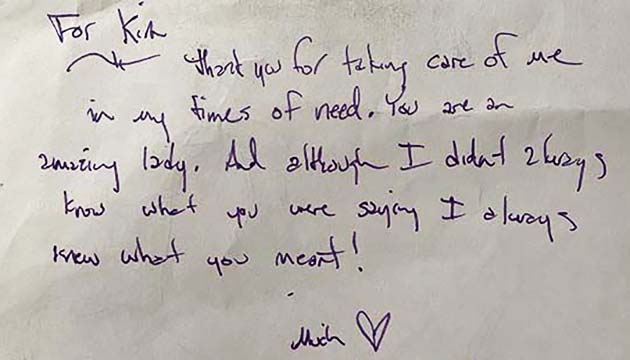 For Kim
Thank you for taking care of me
in my times of need. You are an
amazing lady. And although I didn't always
know what you were saying I always
knew what you meant!
Much ♡